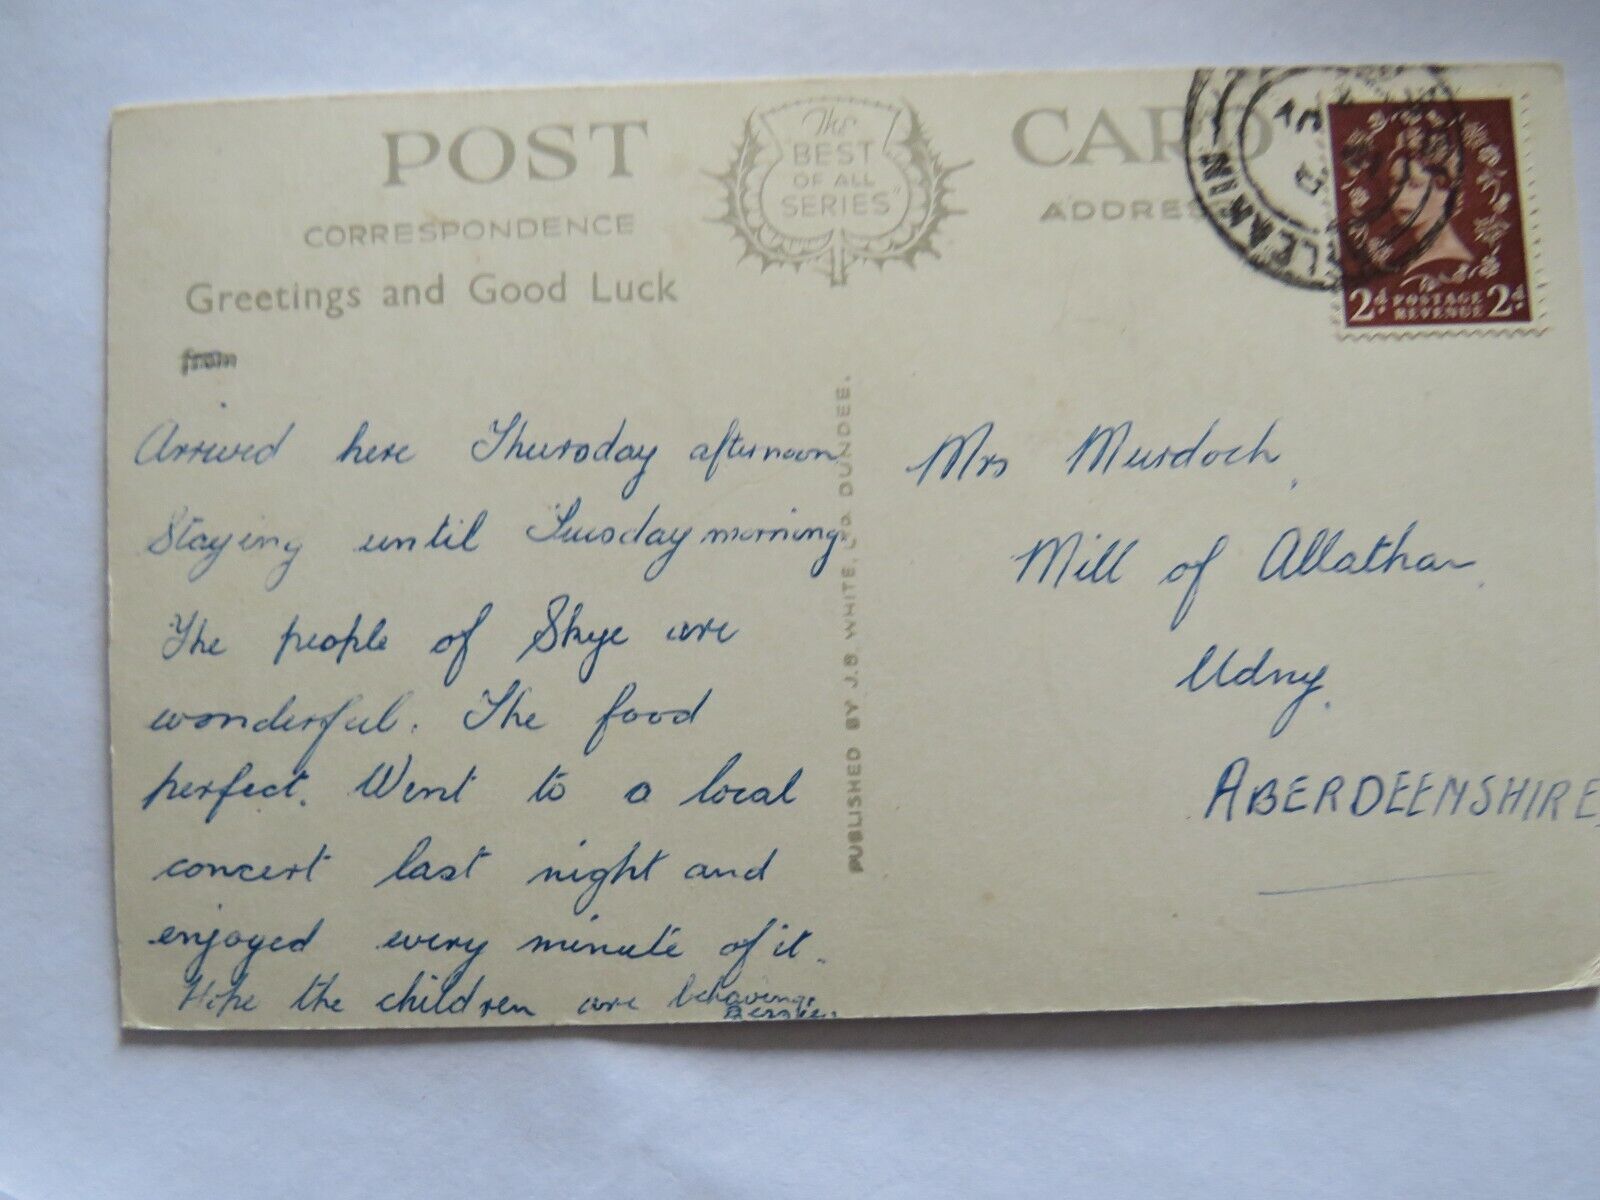 POST CARD
The
BEST
OF ALL
SERIES"
CORRESPONDENCE
ADDRESS
KYLEAKIN
2d POSTAGE 2d
REVENUE
Greetings and Good Luck
from
Arrived here Thursday afternoon
Staying until Tuesday morning.
The people of Skye are
wonderful. The food
perfect. Went to a local
concert last night and
enjoyed every minute of it.
Hope the children are behaving.
Bessie.
PUBLISHED BY J.B. WHITE, LTD. DUNDEE.
Mrs Murdoch,
Mill of Allathan,
Udny,
ABERDEENSHIRE,